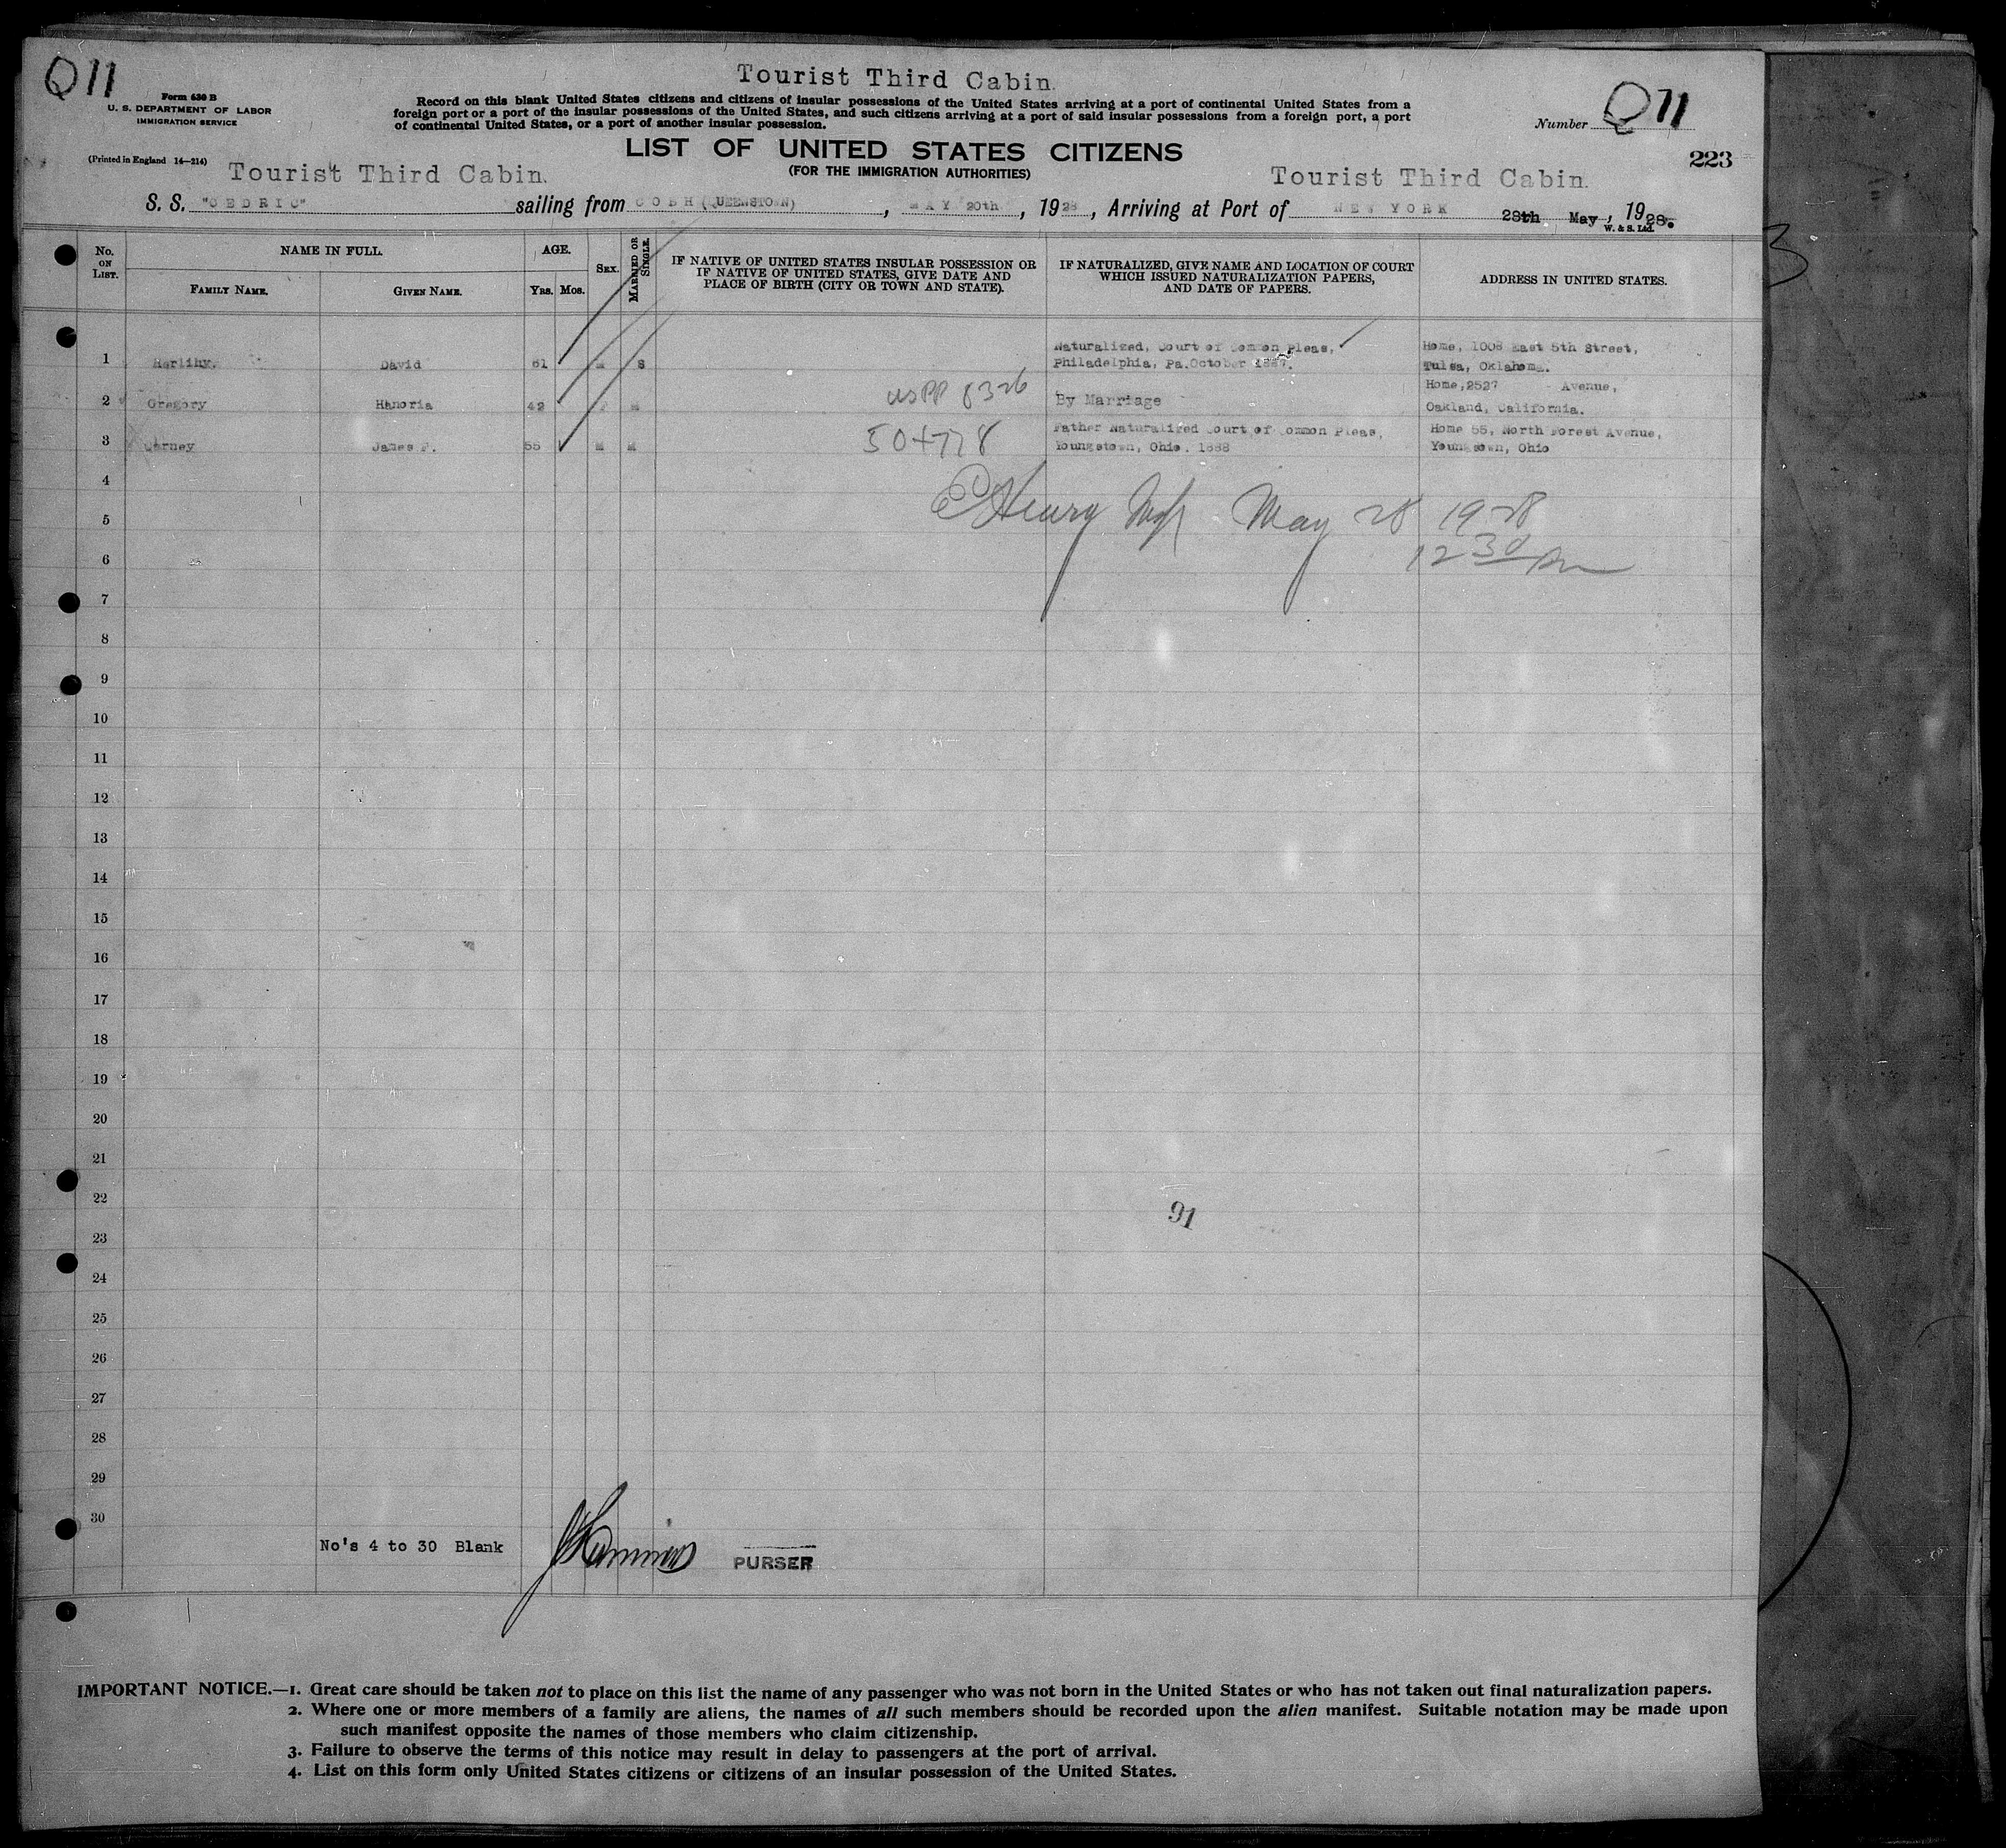 Q11
Tourist Third Cabin.
Form 630 B
U. S. DEPARTMENT OF LABOR
IMMIGRATION SERVICE
Record on this blank United States citizens and citizens of insular possessions of the United States arriving at a port of continental United States from a
foreign port or a port of the insular possessions of the United States, and such citizens arriving at a port of said insular possessions from a foreign port, a port
of continental United States, or a port of another insular possession.
Number Q11
LIST OF UNITED STATES CITIZENS
(FOR THE IMMIGRATION AUTHORITIES)
223
(Printed in England 14—214)
Tourist Third Cabin.
Tourist Third Cabin.
S. S. "CEDRIC" sailing from COBH (QUEENSTOWN), MAY 20th, 1928, Arriving at Port of NEW YORK 28th May, 1928.
W. & S. Ltd.
No. ON LIST.
NAME IN FULL.
FAMILY NAME.
GIVEN NAME.
AGE.
YRS. MOS.
SEX.
MARRIED OR SINGLE.
IF NATIVE OF UNITED STATES INSULAR POSSESSION OR
IF NATIVE OF UNITED STATES, GIVE DATE AND
PLACE OF BIRTH (CITY OR TOWN AND STATE).
IF NATURALIZED, GIVE NAME AND LOCATION OF COURT
WHICH ISSUED NATURALIZATION PAPERS,
AND DATE OF PAPERS.
ADDRESS IN UNITED STATES.
1 Herlihy. David 61 M S
Naturalized, Court of Common Pleas,
Philadelphia, Pa. October 1887.
Home, 1008 East 5th Street,
Tulsa, Oklahoma.
2 Gregory Hanoria 42 F M
USPP 6326
By Marriage
Home, 2527 Avenue,
Oakland, California.
3 Carney James P. 55 M M
504778
Father Naturalized Court of Common Pleas,
Youngstown, Ohio. 1888
Home 55, North Forest Avenue,
Youngstown, Ohio
4
Henry May 28 1928
5
12 30 pm
6
7
8
9
10
11
12
13
14
15
16
17
18
19
20
21
22
91
23
24
25
26
27
28
29
30
No's 4 to 30 Blank
PURSER
IMPORTANT NOTICE.—1. Great care should be taken not to place on this list the name of any passenger who was not born in the United States or who has not taken out final naturalization papers.
2. Where one or more members of a family are aliens, the names of all such members should be recorded upon the alien manifest. Suitable notation may be made upon
such manifest opposite the names of those members who claim citizenship.
3. Failure to observe the terms of this notice may result in delay to passengers at the port of arrival.
4. List on this form only United States citizens or citizens of an insular possession of the United States.
3